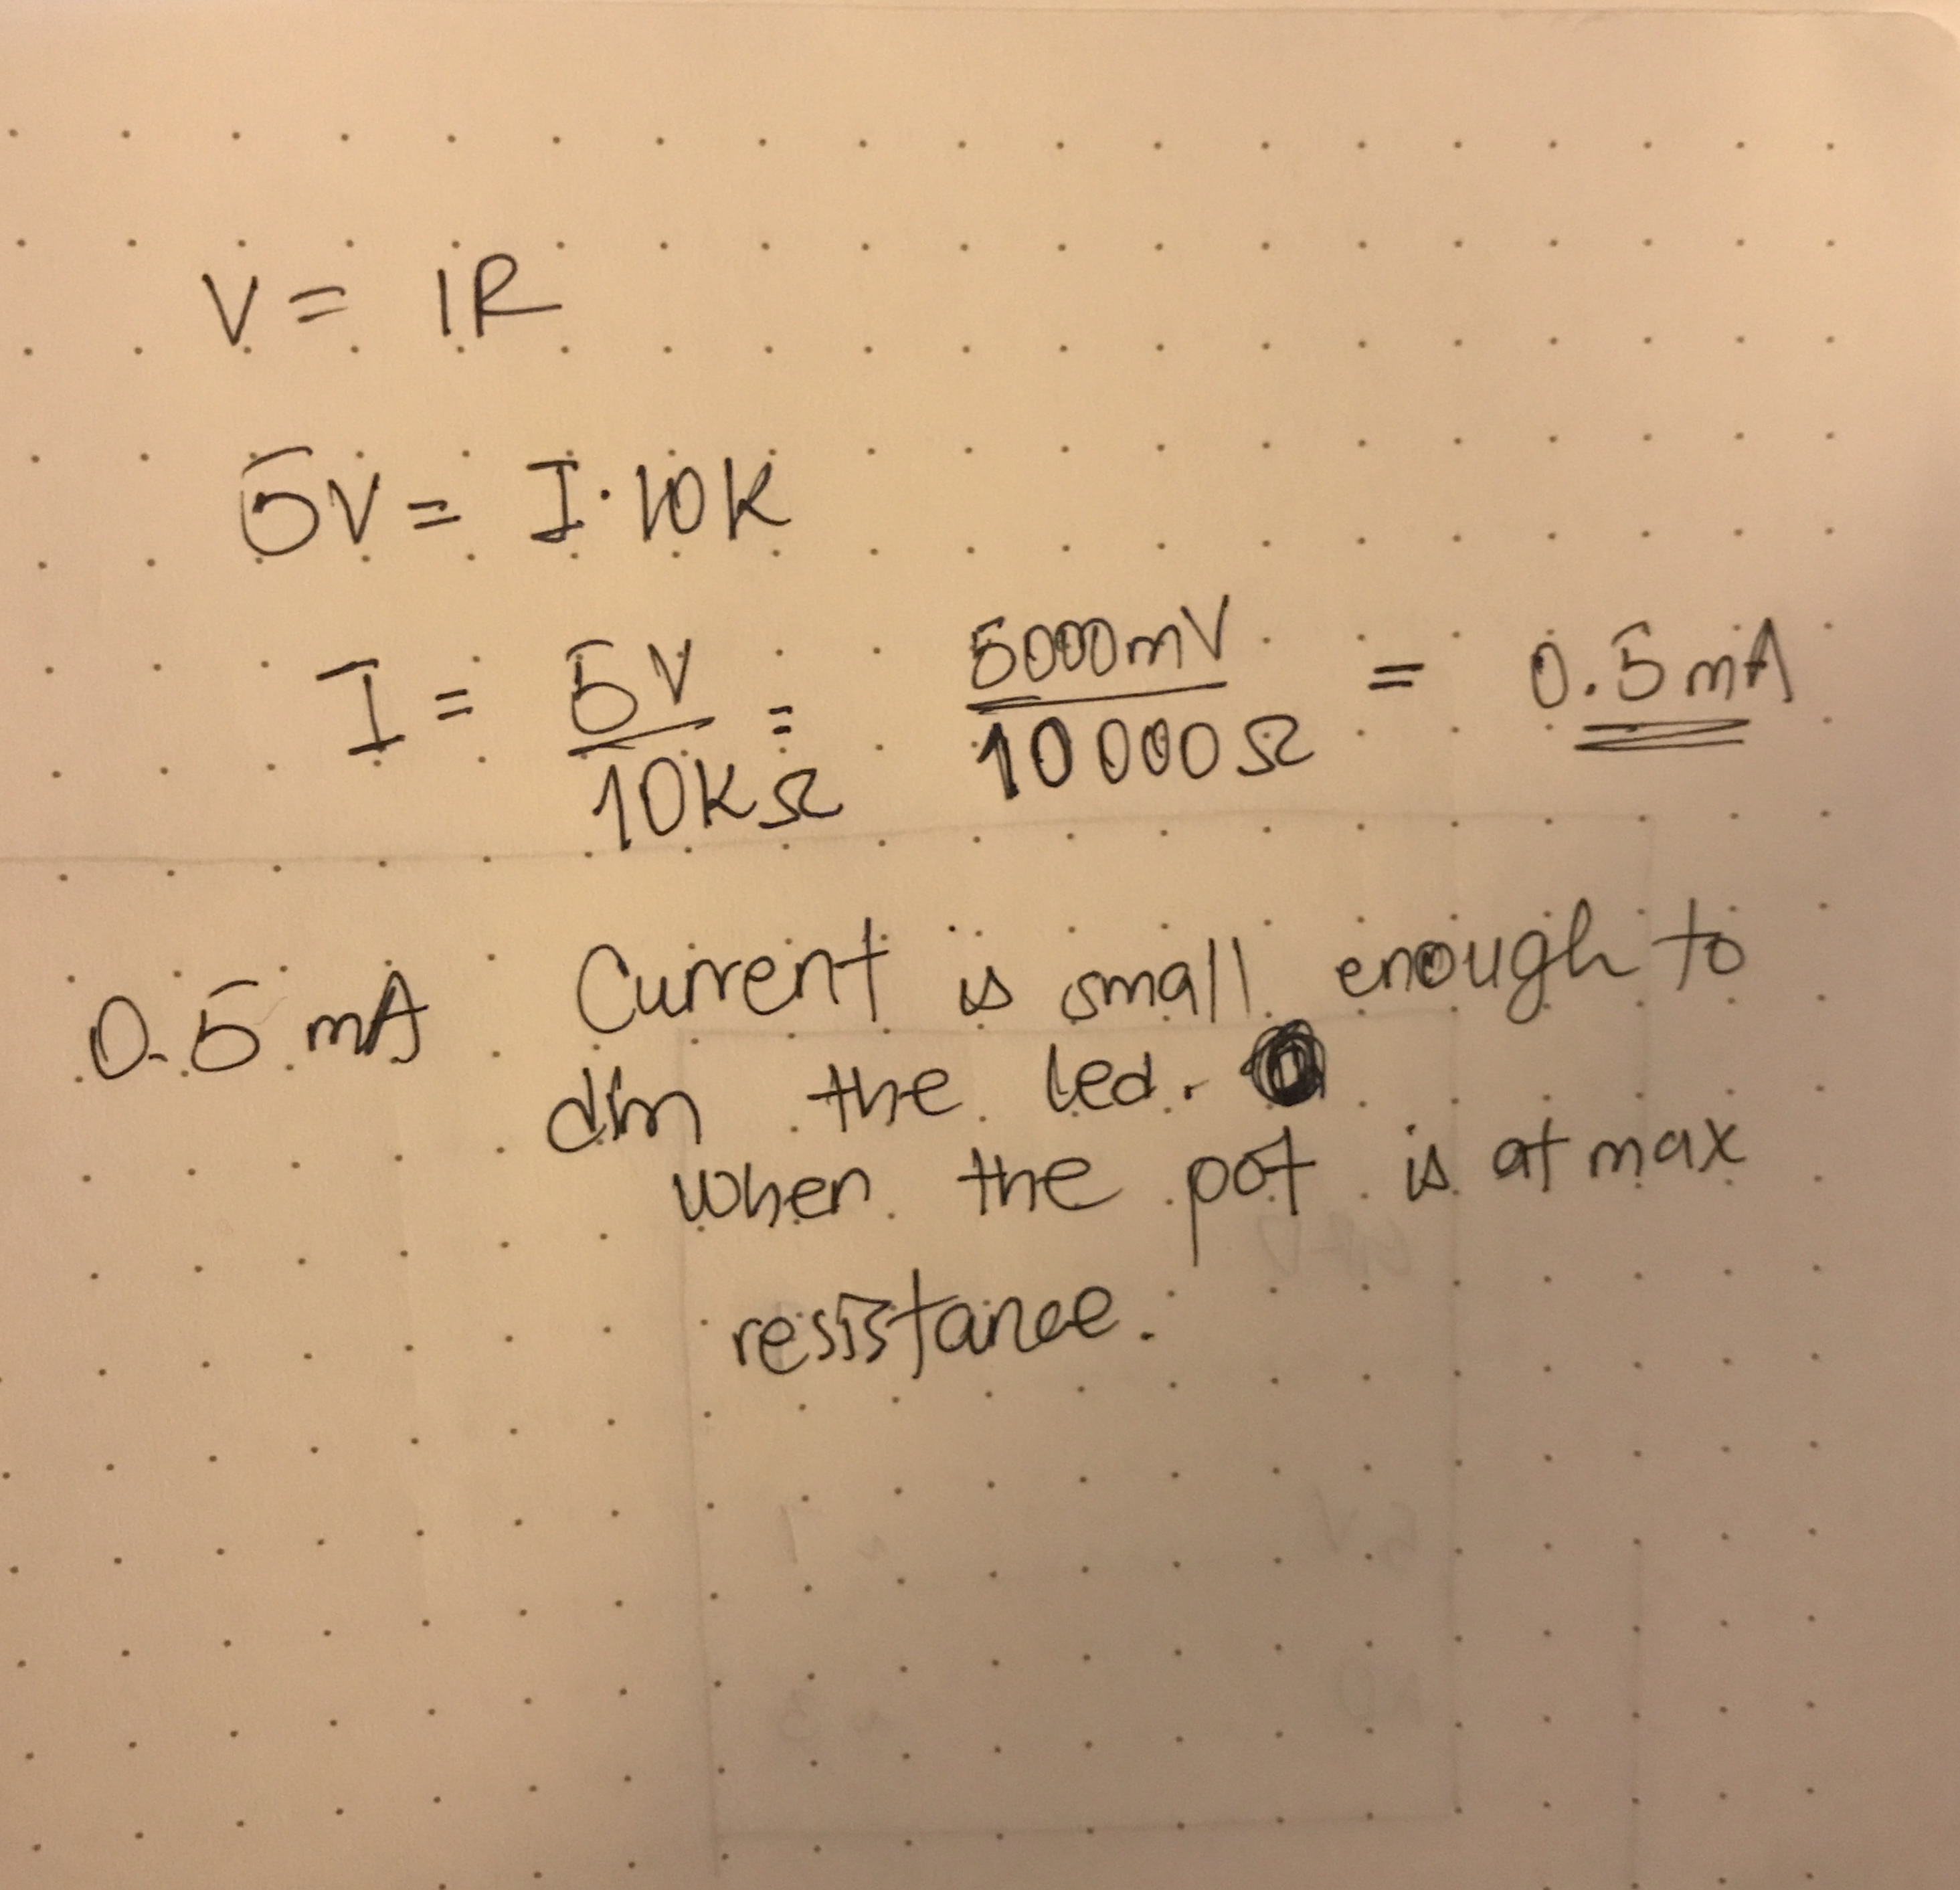 V = IR
5V = I·10K
I = 5V/10KΩ = 5000mV/10000Ω = 0.5mA
0.5 mA Current is small enough to
dim the led.
when the pot is at max
resistance.